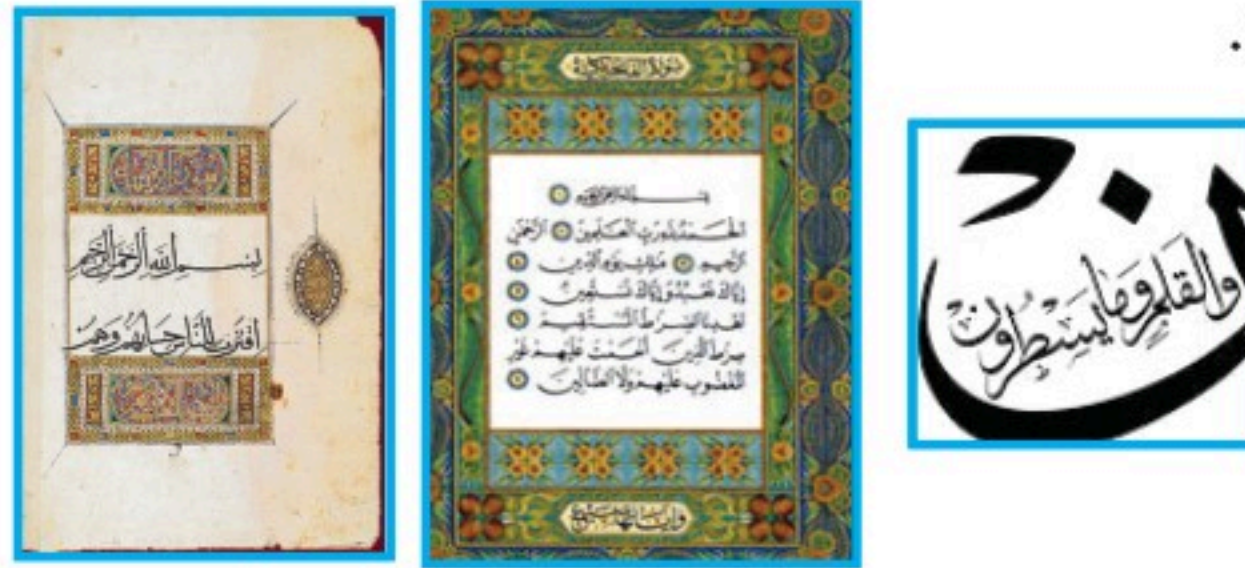 بسم الله الرحمن الرحيم
اقترب للناس حسابهم وهم
سورة الفاتحة مكية
بسم الله الرحمن الرحيم ١
الحمد لله رب العلمين ٢ الرحمن
الرحيم ٣ ملك يوم الدين ٤
إياك نعبد وإياك نستعين ٥
اهدنا الصراط المستقيم ٦
صراط الذين أنعمت عليهم غير
المغضوب عليهم ولا الضالين ٧
وآياتها سبع
ن والقلم وما يسطرون